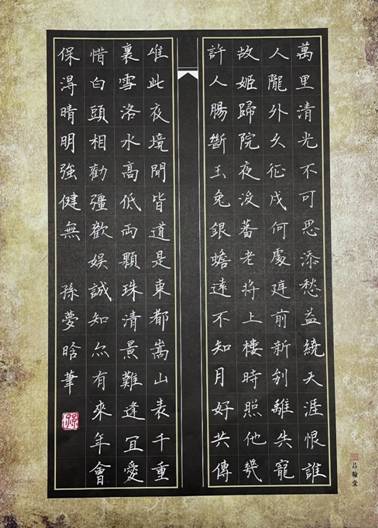 萬里清光不可思添愁益繞天涯恨誰
人隴外久征戍何處庭前新別離失寵
故姬歸院夜沒蕃老將上樓時照他幾
許人腸斷玉兔銀蟾遠不知月好共傳
唯此夜境閒皆道是東都嵩山表千重
裏雪洛水高低兩顆珠清景難逢宜愛
惜白頭相勸彊歡娛誠知亦有來年會
保得晴明強健無 孫夢晗筆
品翰堂